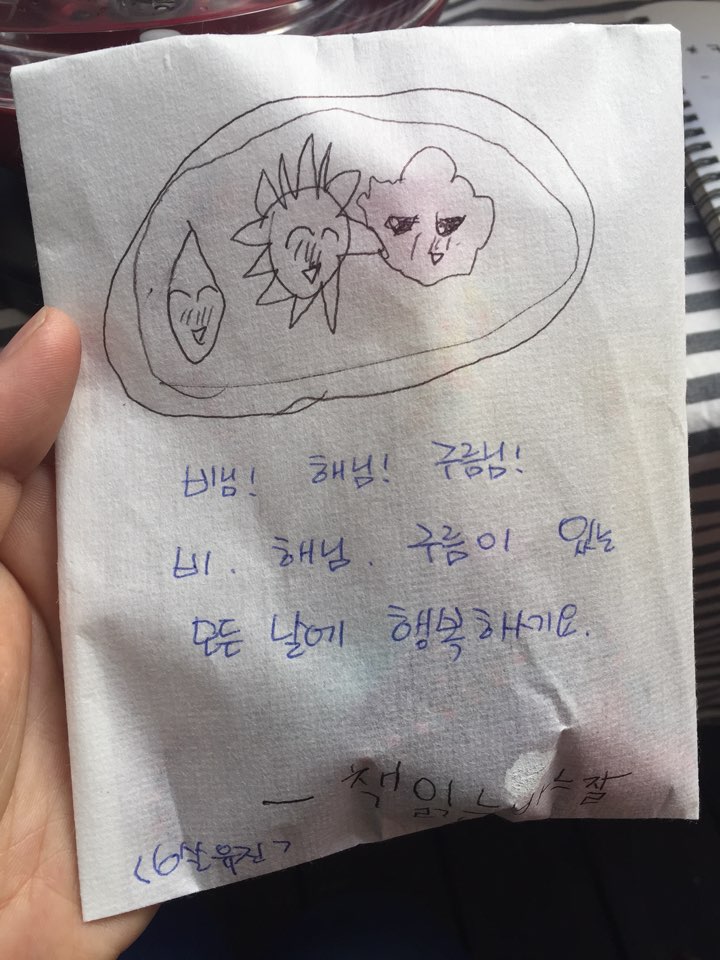 비님! 해님! 구름님!
비. 해님. 구름이 있는
모든 날에 행복하기요.
— 책읽는
<6살 유진>